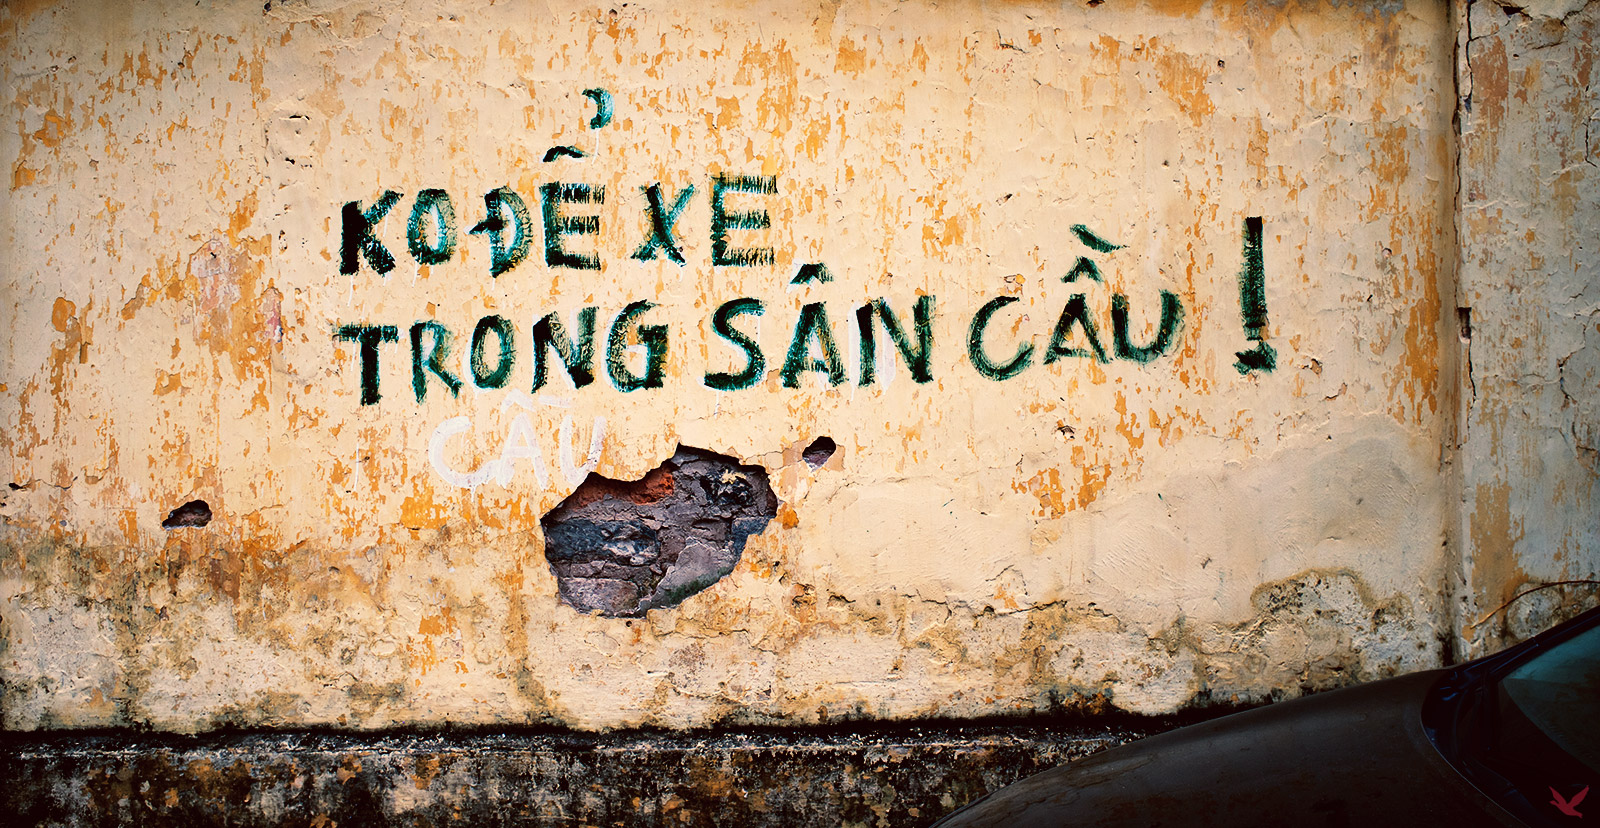 KO ĐỂ XE
TRONG SÂN CẦU !
CẦU